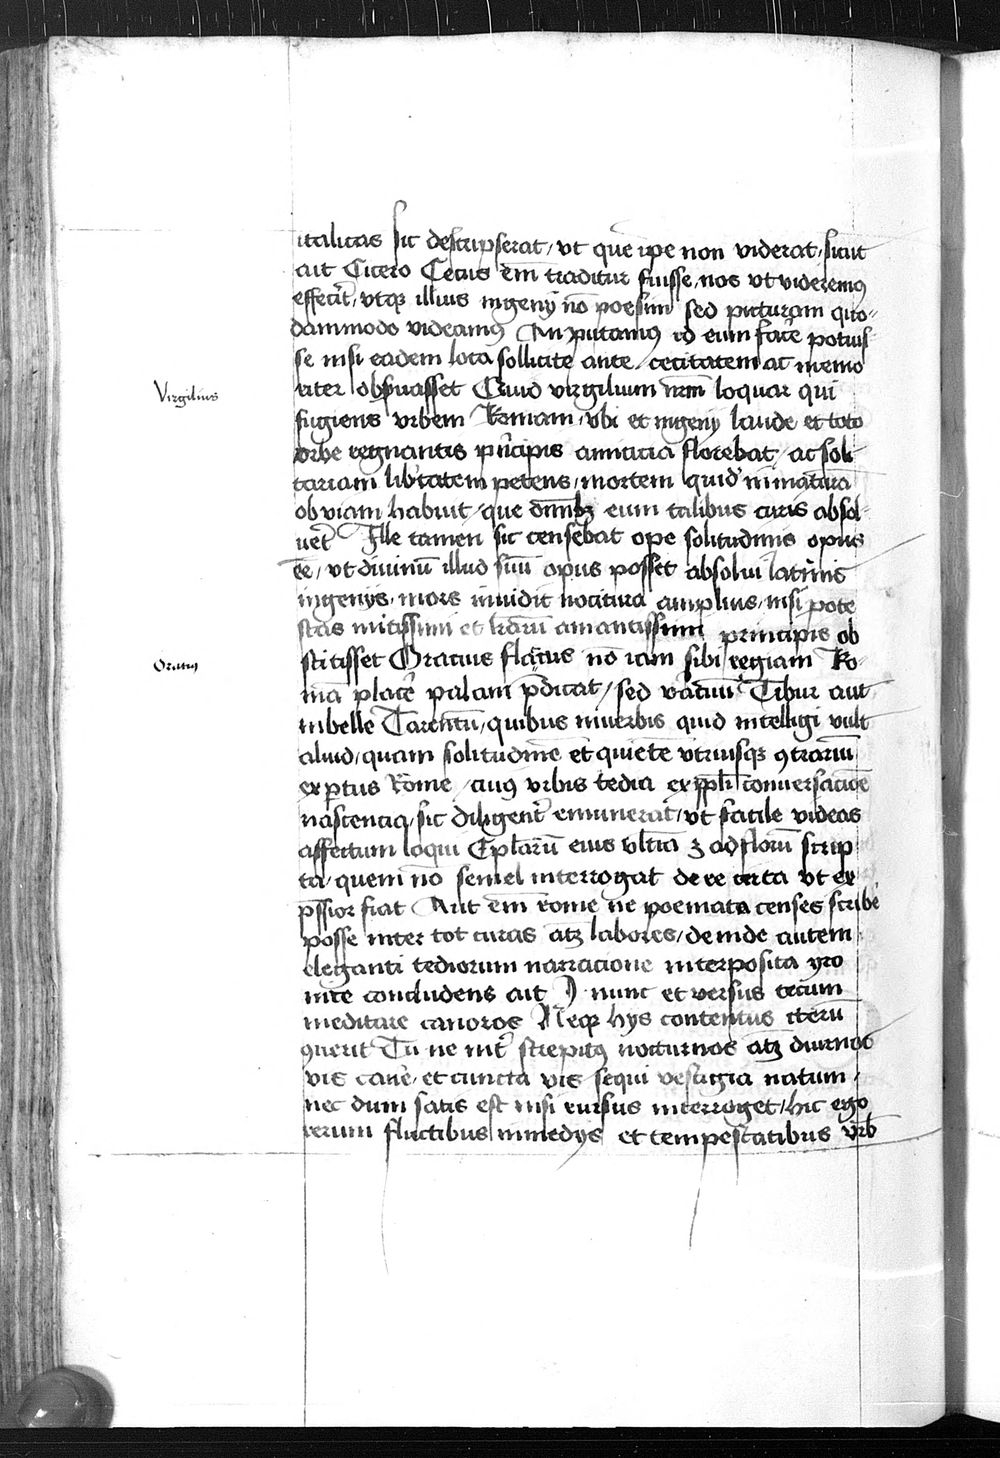 italicas sic descripserat / vt que ip̄e non viderat / sicut
ait Cicero Cecus em̄ traditur fuisse / nos vt videremus
effecit / vtqz illius ingenij nō poesim sed picturam quo-
dammodo videamus An putamus id eum facē potuis
se nisi eadem loca sollicite ante cecitatem ac memo
riter obseruasset Quid virgilium nr̄m loquar qui
Virgilius
fugiens vrbem Romam / vbi et ingenij laude et toto
orbe regnantis pn̄cipis amicicia florebat / ac soli
tariam lib̄tatem petens / mortem quid' inmaturā
obuiam habuit / que om̄ibz eum talibus curis absol-
ueret Ille tamen sic censebat ope solitudinis opus
ēē / vt diuinū illud suū opus posset absolui latinis
ingenijs / mors inuidit nocitura amplius / nisi pote
stas mitissimi et lr̄arū amantissimi principis ob
stitisset Oracius flaccus nō iam sibi regiam Ro-
Oratius
mā placē palam p̄dicat / sed vacuū Tibur aut
inbelle Tarentū / quibus inuerbis quid intelligi vult
aliud / quam solitudinē et quietē vtriusqz 9trariū
exp̄tus Rome / cuius vrbis tedia ex pp̄li conuersacioē
nascencia / sic diligent' enumerat / vt facile videas
affectum loqui Ep̄larū eius vltīa ē ad florū scrip
ta / quem nō semel interrogat de re certa vt ex
p̄ssior fiat Ait em̄ rome ne poemata censes scribē
posse inter tot curas atz labores / deinde autem
eleganti tediorum narracione interposita yro
nice concludens ait I nunc et versus tecum
meditare canoros Neqz hijs contentus iterū
querit Tu ne int' strepitus nocturnos atz diurnos
vis canē / et cuncta vis sequi vestigia natum /
nec dum satis est nisi rursus interroget / hic ego
rerum fluctibus inmedijs et tempestatibus vrb